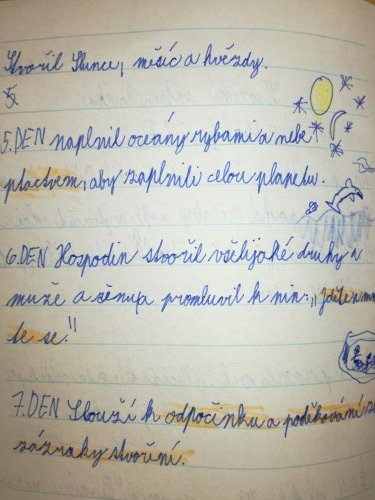 Stvořil Slunce, měsíc a hvězdy.
5.
5.DEN naplnil oceány rybami a nebe
ptactvem, aby zaplnili celou planetu.
6.DEN Hospodin stvořil všelijaké druhy
muže a ženu a promluvil k nim: „Jděte a
te se."
7.DEN Slouží k odpočinku a poděkování
zázraky stvoření.